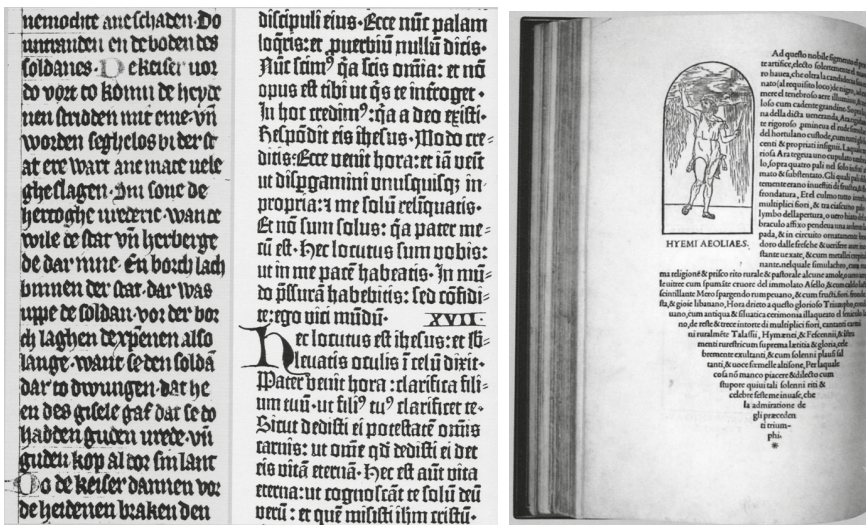 nemochte ane schaden. Do
en de boden des
soldanes. De keiser vor
do vort to konni de heyde
nen stridden mit eme. vn̄
worden seghelos bi der st
at ere wart ane mate vele
gheslagen. Sin sone de
hertoghe vrederic. wan de
wile de stat vn̄ herberge
de dar mne. En borch lach
binnen der stat. dar was
uppe de soldan. vor der bor
ch laghen dexpenen also
lange. want se den soldā
dar to dwungen. dat he
en des gisele gaf dat se do
hadden guden vrede. vn̄
guden kop al dor sin lant
Do de keiser dannen vor
de heidenen braken den
discipuli eius. Ecce nūc palam
loq̄ris: et ꝓuerbiū nullū dicis.
Nūc scimꝰ q̄a scis om̄ia: et nō
opus est tibi ut q̄s te int̄roget.
In hoc credimꝰ: q̄a a deo existi.
Respōdit eis ihesus. Modo cre-
ditis: Ecce venit hora: et iā venit
ut disꝑgamini vnusquisqꝫ in
propria: ⁊ me solū relīquatis.
Et nō sum solus: q̄a pater me-
cū est. Hec locutus sum vobis:
ut in me pacē habeatis. In mū-
do p̄ssurā habebitis: sed cōfidi-
te: ego vici mūdū. XVII
Hec locutus est ihesus: et sb-
leuatis oculis ī celū dixit.
Pater venit hora: clarifica fili-
um tuū. ut filiꝰ tuꝰ clarificet te.
Sicut dedisti ei potestatē om̄is
carnis: ut om̄e qd̄ dedisti ei det
eis vitā eternā. Hec est aūt vita
eterna: ut cognoscāt te solū deū
verū: et quē misisti ihm̄ cristū.
HYEMI AEOLIAES.
Ad questo nobile figmento el
te artifice, electo solertemente
ro hauea, che oltra la candidecia
nato (al requisito loco) de nigro,
mere el tenebroso aere illumin
loso cum cadente grandine. So
na della dicta ueneranda, Ara
te rigoroso prominea el rude
del hortulano custode, cum tutti
centi & propriati insigni. La q
riosa Ara tegeua uno cupulato
lo, sopra quatro pali nel solo
mato & substentato. Gli quali pali
temente erano inuestiti di
frondatura, Et el culmo tutto
multiplici fiori, & tra ciascuno palo
lymbo dellapertura, o uero hiato
braculo affixo pendeua una ardente
pada, & in circuito ornatamente
doro dalle fresche & uerifere
stante uexate, & cum metallei crepi
nante. nelquale simulachro, cum
ma religione & prisco rito rurale & pastorale alcune amole, o uero
le uitree cum spumate cruore del immolato Asello, & cum caldo
scintillante Mero spargendo rumpeuano, & cum fructi, fiori, fronde
sta, & gioie libauano, Hora drieto a questo glorioso Triumpho,
uano, cum antiqua & siluatica cerimonia illaqueato el
no, de reste & trece intorte di multiplici fiori, cantanti carmi
ni ruralmēte Talassii, Hymænei, & Fescennii, &
menti rurestri cum suprema lætitia & gloria, cele
bremente exultanti, & cum solenni plausi sal
tanti, & uoce firmelle altisone, Per laquale
cosa nō manco piacere & dilecto cum
stupore quiui tali solenni riti &
celebre feste me inuase, che
la admiratione de
gli præceden
ti trium-
phi.
*